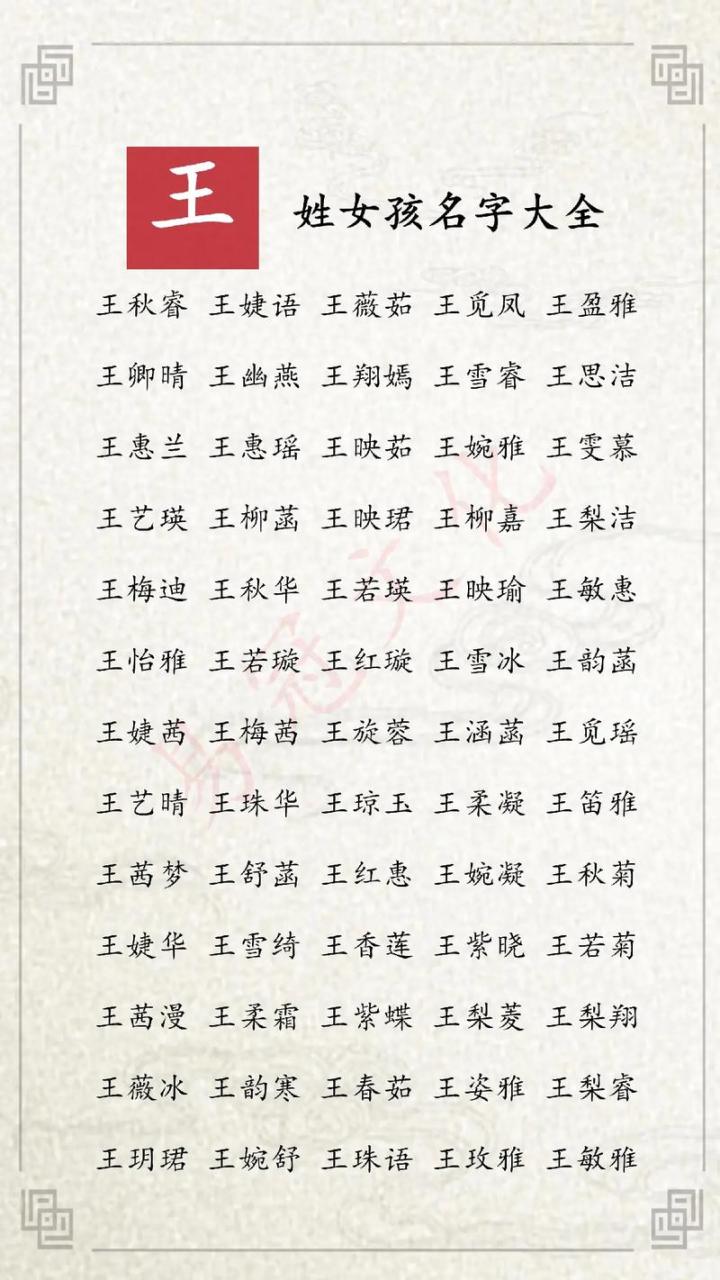 王 姓女孩名字大全
王秋睿 王婕语 王薇茹 王觅凤 王盈雅
王卿晴 王幽燕 王翔嫣 王雪睿 王思洁
王惠兰 王惠瑶 王映茹 王婉雅 王雯慕
王艺瑛 王柳菡 王映珺 王柳嘉 王梨洁
王梅迪 王秋华 王若瑛 王映瑜 王敏惠
王怡雅 王若璇 王红璇 王雪冰 王韵菡
王婕茜 王梅茜 王旋蓉 王涵菡 王觅瑶
王艺晴 王珠华 王琼玉 王柔凝 王笛雅
王茜梦 王舒菡 王红惠 王婉凝 王秋菊
王婕华 王雪绮 王香莲 王紫晓 王若菊
王茜漫 王柔霜 王紫蝶 王梨菱 王梨翔
王薇冰 王韵寒 王春茹 王姿雅 王梨睿
王玥珺 王婉舒 王珠语 王玫雅 王敏雅